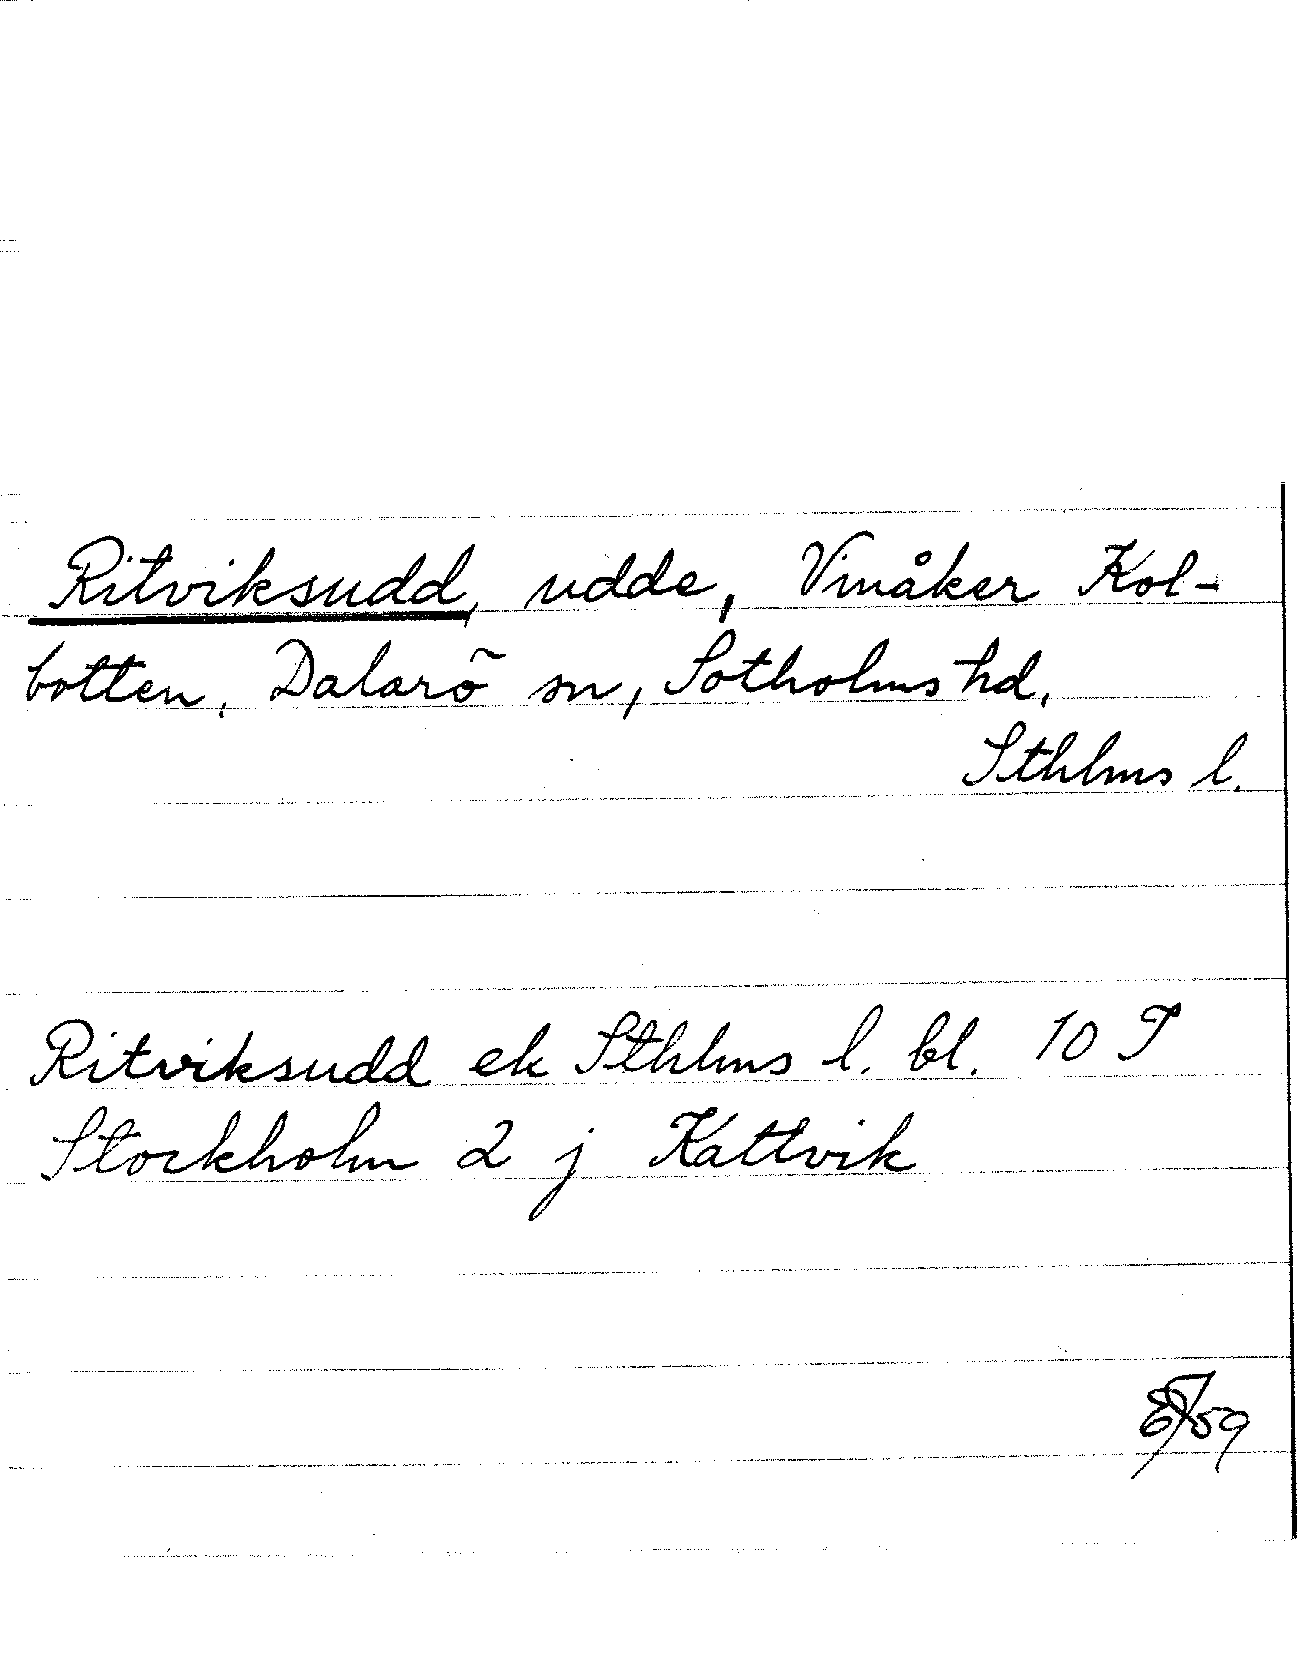 Ritviksudd, udde, Vinåker Kol-
botten, Dalarö sn, Sotholms hd,
Sthlms l.
Ritviksudd ek Sthlms l. bl. 10 T
Stockholm 2 j Kattvik
59